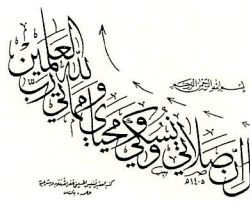 بسم الله الرحمن الرحيم
ان صلاتي ونسكي ومحياي ومماتي لله رب العالمين
١٤٠٥